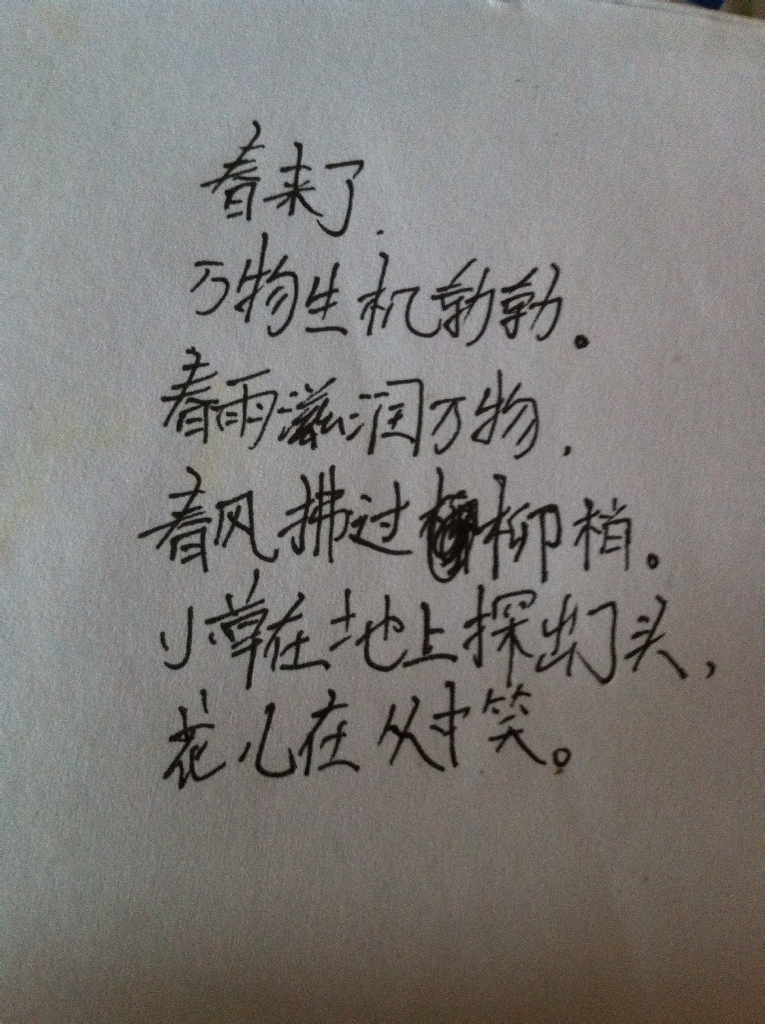 春来了.
万物生机勃勃。
春雨滋润万物,
春风拂过柳梢。
小草在地上探出了头,
花儿在丛中笑。